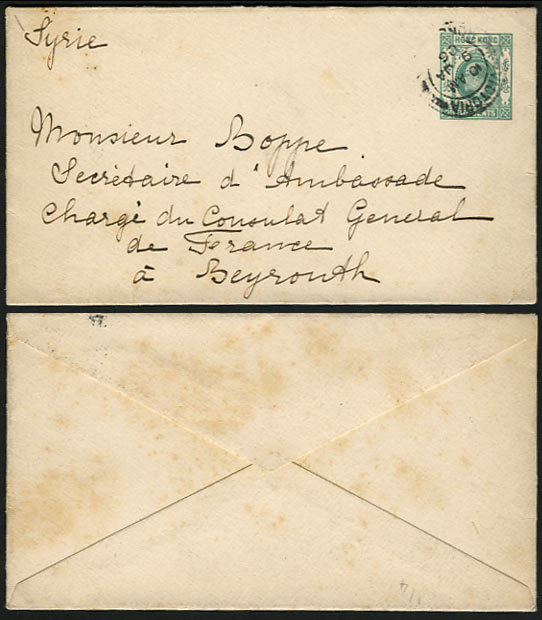 Syrie
HONG KONG
VICTORIA
10 AM
Monsieur Boppe
Secrétaire d'Ambassade
Chargé du Consulat General
de France
à Beyrouth
1/4